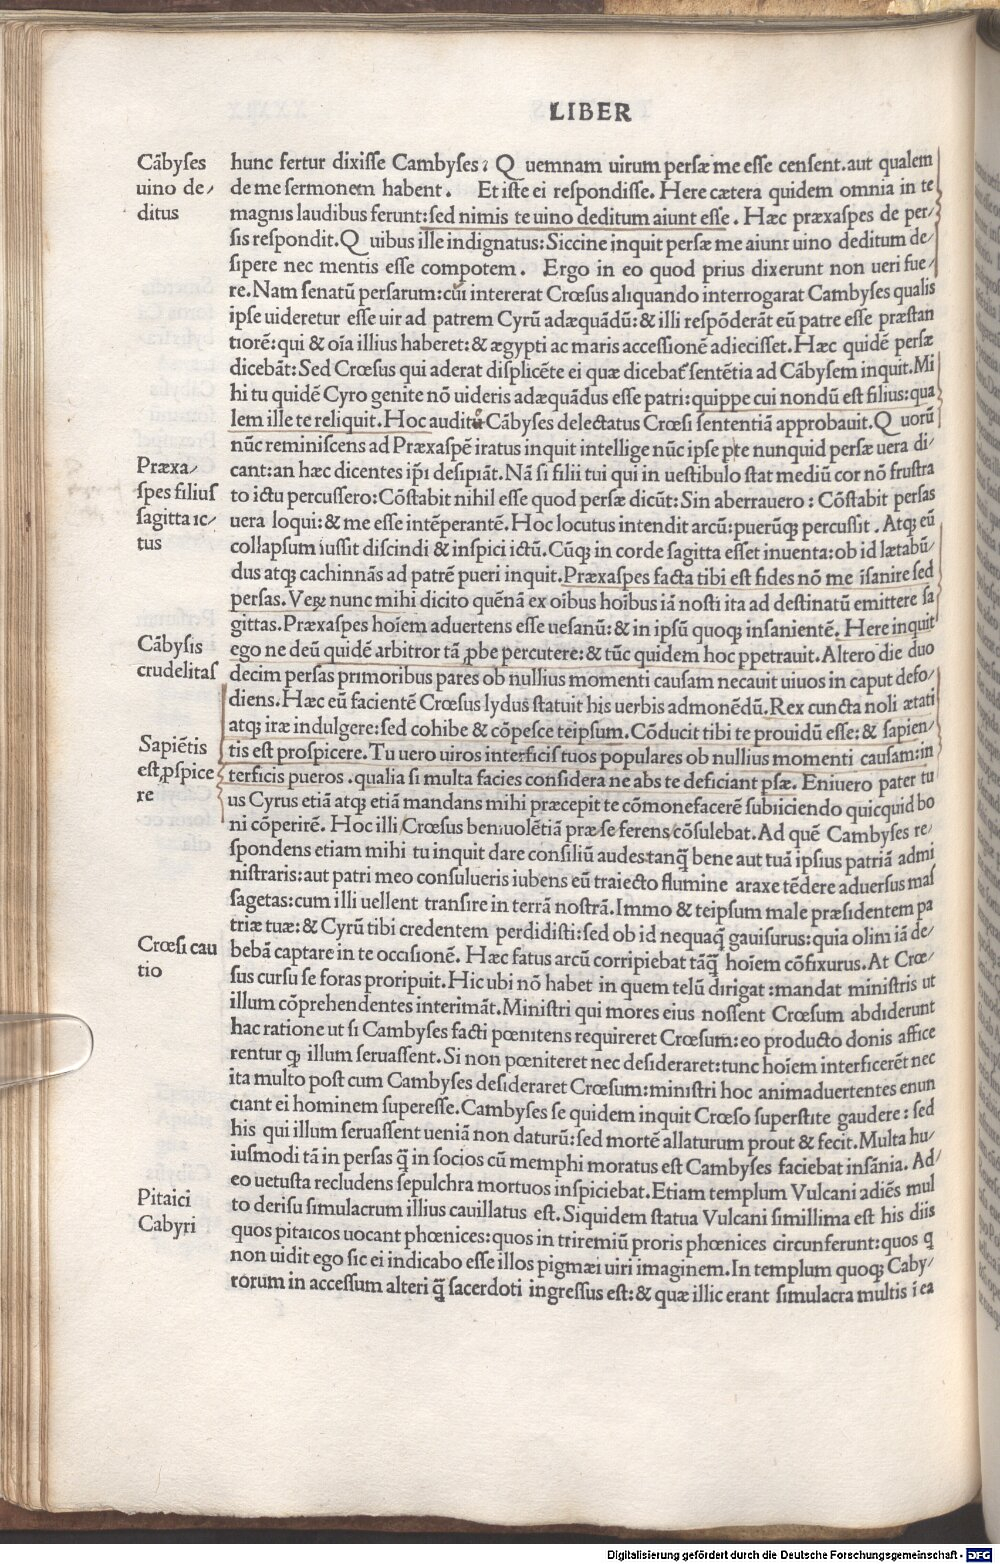 LIBER
Cābyſes
uino de⸗
ditus
hunc fertur dixiſſe Cambyſes: Q uemnam uirum perſæ me eſſe cenſent. aut qualem
de me ſermonem habent. Et iſte ei reſpondiſſe. Here cætera quidem omnia in te
magnis laudibus ferunt: ſed nimis te uino deditum aiunt eſſe. Hæc præxaſpes de per⸗
ſis reſpondit. Q uibus ille indignatus: Siccine inquit perſæ me aiunt uino deditum de⸗
ſipere nec mentis eſſe compotem. Ergo in eo quod prius dixerunt non ueri fue⸗
re. Nam ſenatū perſarum: cui intererat Crœſus aliquando interrogarat Cambyſes qualis
ipſe uideretur eſſe uir ad patrem Cyrū adæquādū: & illi reſpōderāt eū patre eſſe præſtan
tiorē: qui & oīa illius haberet: & ægypti ac maris acceſſionē adieciſſet. Hæc quidē perſæ
dicebāt: Sed Crœſus qui aderat diſplicēte ei quæ dicebat̄ ſentētia ad Cābyſem inquit. Mi
hi tu quidē Cyro genite nō uideris adæquādus eſſe patri: quippe cui nondū eſt filius: qua
lem ille te reliquit. Hoc auditū Cābyſes delectatus Crœſi ſententiā approbauit. Q uorū
nūc reminiscens ad Præxaſpē iratus inquit intellige nūc ipſe pte nunquid perſæ uera di⸗
Præxa⸗
ſpes filiuſ
ſagitta ic⸗
tus
cant: an hæc dicentes ip̄i deſipiāt. Nā ſi filii tui qui in ueſtibulo ſtat mediū cor nō fruſtra
to ictu percuſſero: Cōſtabit nihil eſſe quod perſæ dicūt: Sin aberrauero: Cōſtabit perſas
uera loqui: & me eſſe intēperantē. Hoc locutus intendit arcū: puerūq; percuſſit. Atq; eū
collapſum iuſſit diſcindi & inſpici ictū. Cūq; in corde ſagitta eſſet inuenta: ob id lætabū⸗
dus atq; cachinnās ad patrē pueri inquit. Præxaſpes facta tibi eſt fides nō me īſanire ſed
perſas. Veꝝ nunc mihi dicito quēnā ex oībus hoībus iā noſti ita ad deſtinatū emittere ſa
gittas. Præxaſpes hoīem aduertens eſſe ueſanū: & in ipſū quoq; inſanientē. Here inquit
Cābyſis
crudelitaſ
ego ne deū quidē arbitror tā ꝓbe percutere: & tūc quidem hoc ppetrauit. Altero die duo
decim perſas primoribus pares ob nullius momenti cauſam necauit uiuos in caput defo⸗
diens. Hæc eū facientē Crœſus lydus ſtatuit his uerbis admonēdū. Rex cuncta noli ætati
atq; iræ indulgere: ſed cohibe & cōpeſce teipſum. Cōducit tibi te prouidū eſſe: & ſapien⸗
Sapiētis
eſt ꝓſpice
re
tis eſt proſpicere. Tu uero uiros interficiſ tuos populares ob nullius momenti cauſam: in
terficis pueros. qualia ſi multa facies conſidera ne abs te deficiant pſæ. Eniuero pater tu
us Cyrus etiā atq; etiā mandans mihi præcepit te cōmonefacerē ſubiiciendo quicquid bo
ni cōperirē. Hoc illi Crœſus beniuolētiā præ ſe ferens cōſulebat. Ad quē Cambyſes re⸗
ſpondens etiam mihi tu inquit dare conſiliū audes tanq̄ bene aut tuā ipſius patriā admi
niſtraris: aut patri meo conſulueris iubens eū traiecto flumine araxe tēdere aduerſus maſ
ſagetas: cum illi uellent tranſire in terrā noſtrā. Immo & teipſum male præſidentem pa
triæ tuæ: & Cyrū tibi credentem perdidiſti: ſed ob id nequaq̄ gauiſurus: quia olim iā de⸗
Crœſi cau
tio
bebā captare in te occiſionē. Hæc fatus arcū corripiebat tāq̄ hoīem cōfixurus. At Crœ⸗
ſus curſu ſe foras proripuit. Hic ubi nō habet in quem telū dirigat: mandat miniſtris ut
illum cōprehendentes interimāt. Miniſtri qui mores eius noſſent Crœſum abdiderunt
hac ratione ut ſi Cambyſes facti pœnitens requireret Crœſum: eo producto donis affice
rentur q; illum ſeruaſſent. Si non pœniteret nec deſideraret: tunc hoīem interficerēt nec
ita multo poſt cum Cambyſes deſideraret Crœſum: miniſtri hoc animaduertentes enun
ciant ei hominem ſupereſſe. Cambyſes ſe quidem inquit Crœſo ſuperſtite gaudere: ſed
his qui illum ſeruaſſent ueniā non daturū: ſed mortē allaturum prout & fecit. Multa hu⸗
iuſmodi tā in perſas q̄ in ſocios cū memphi moratus eſt Cambyſes faciebat inſania. Ad⸗
eo uetuſta recludens ſepulchra mortuos inſpiciebat. Etiam templum Vulcani adiēs mul
Pitaici
Cabyri
to deriſu ſimulacrum illius cauillatus eſt. Siquidem ſtatua Vulcani ſimillima eſt his diis
quos pitaicos uocant phœnices: quos in triremiū proris phœnices circunferunt: quos q
non uidit ego ſic ei indicabo eſſe illos pigmæi uiri imaginem. In templum quoq; Caby⸗
rorum in acceſſum alteri q̄ ſacerdoti ingreſſus eſt: & quæ illic erant ſimulacra multis ī ea
Digitalisierung gefördert durch die Deutsche Forschungsgemeinschaft - DFG